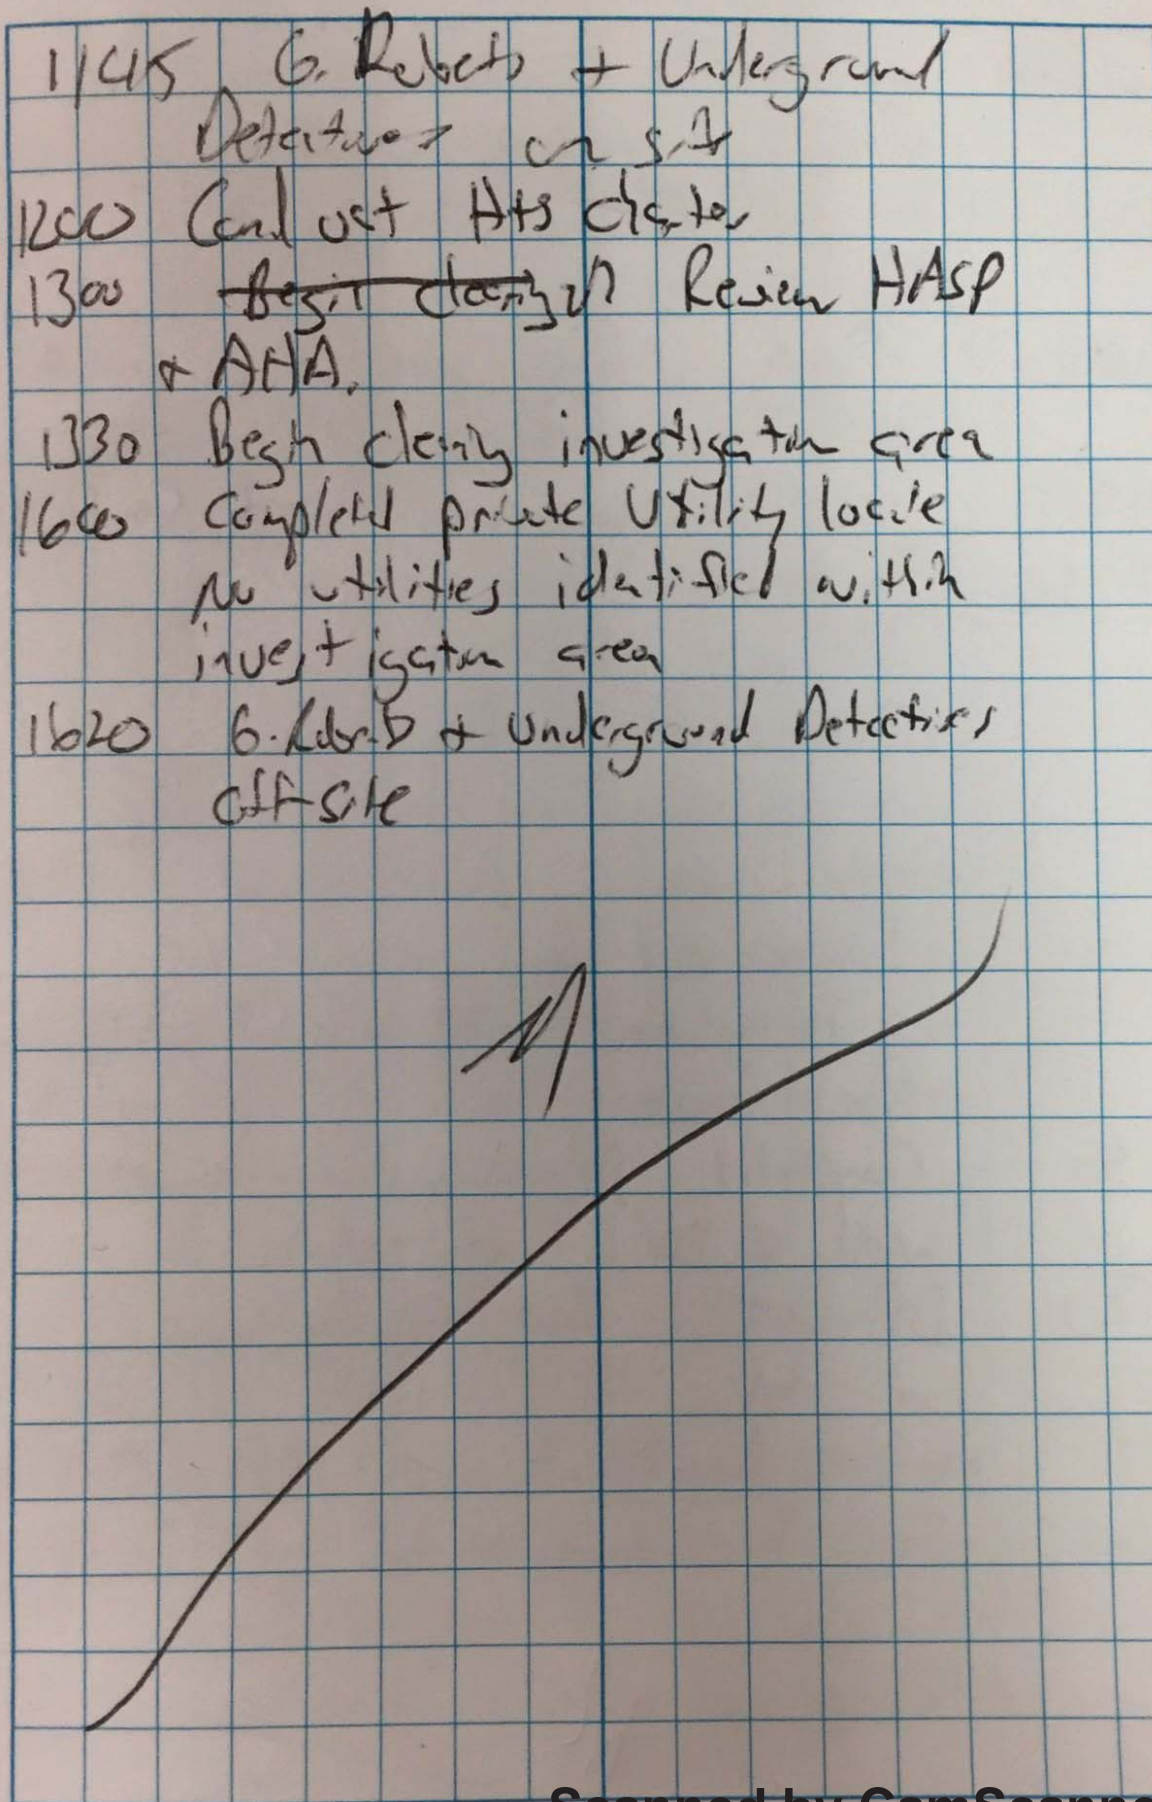 1145 G. Roberts + Underground
Detectives on site
1200 Conduct H+S
1300 Begin clearing Review HASP
+ AHA.
1330 Begin clearing investigation area
1600 Completed private utility locate
No utilities identified within
investigation area
1620 G. Roberts + Underground Detectives
off-site
Scanned by CamScanner